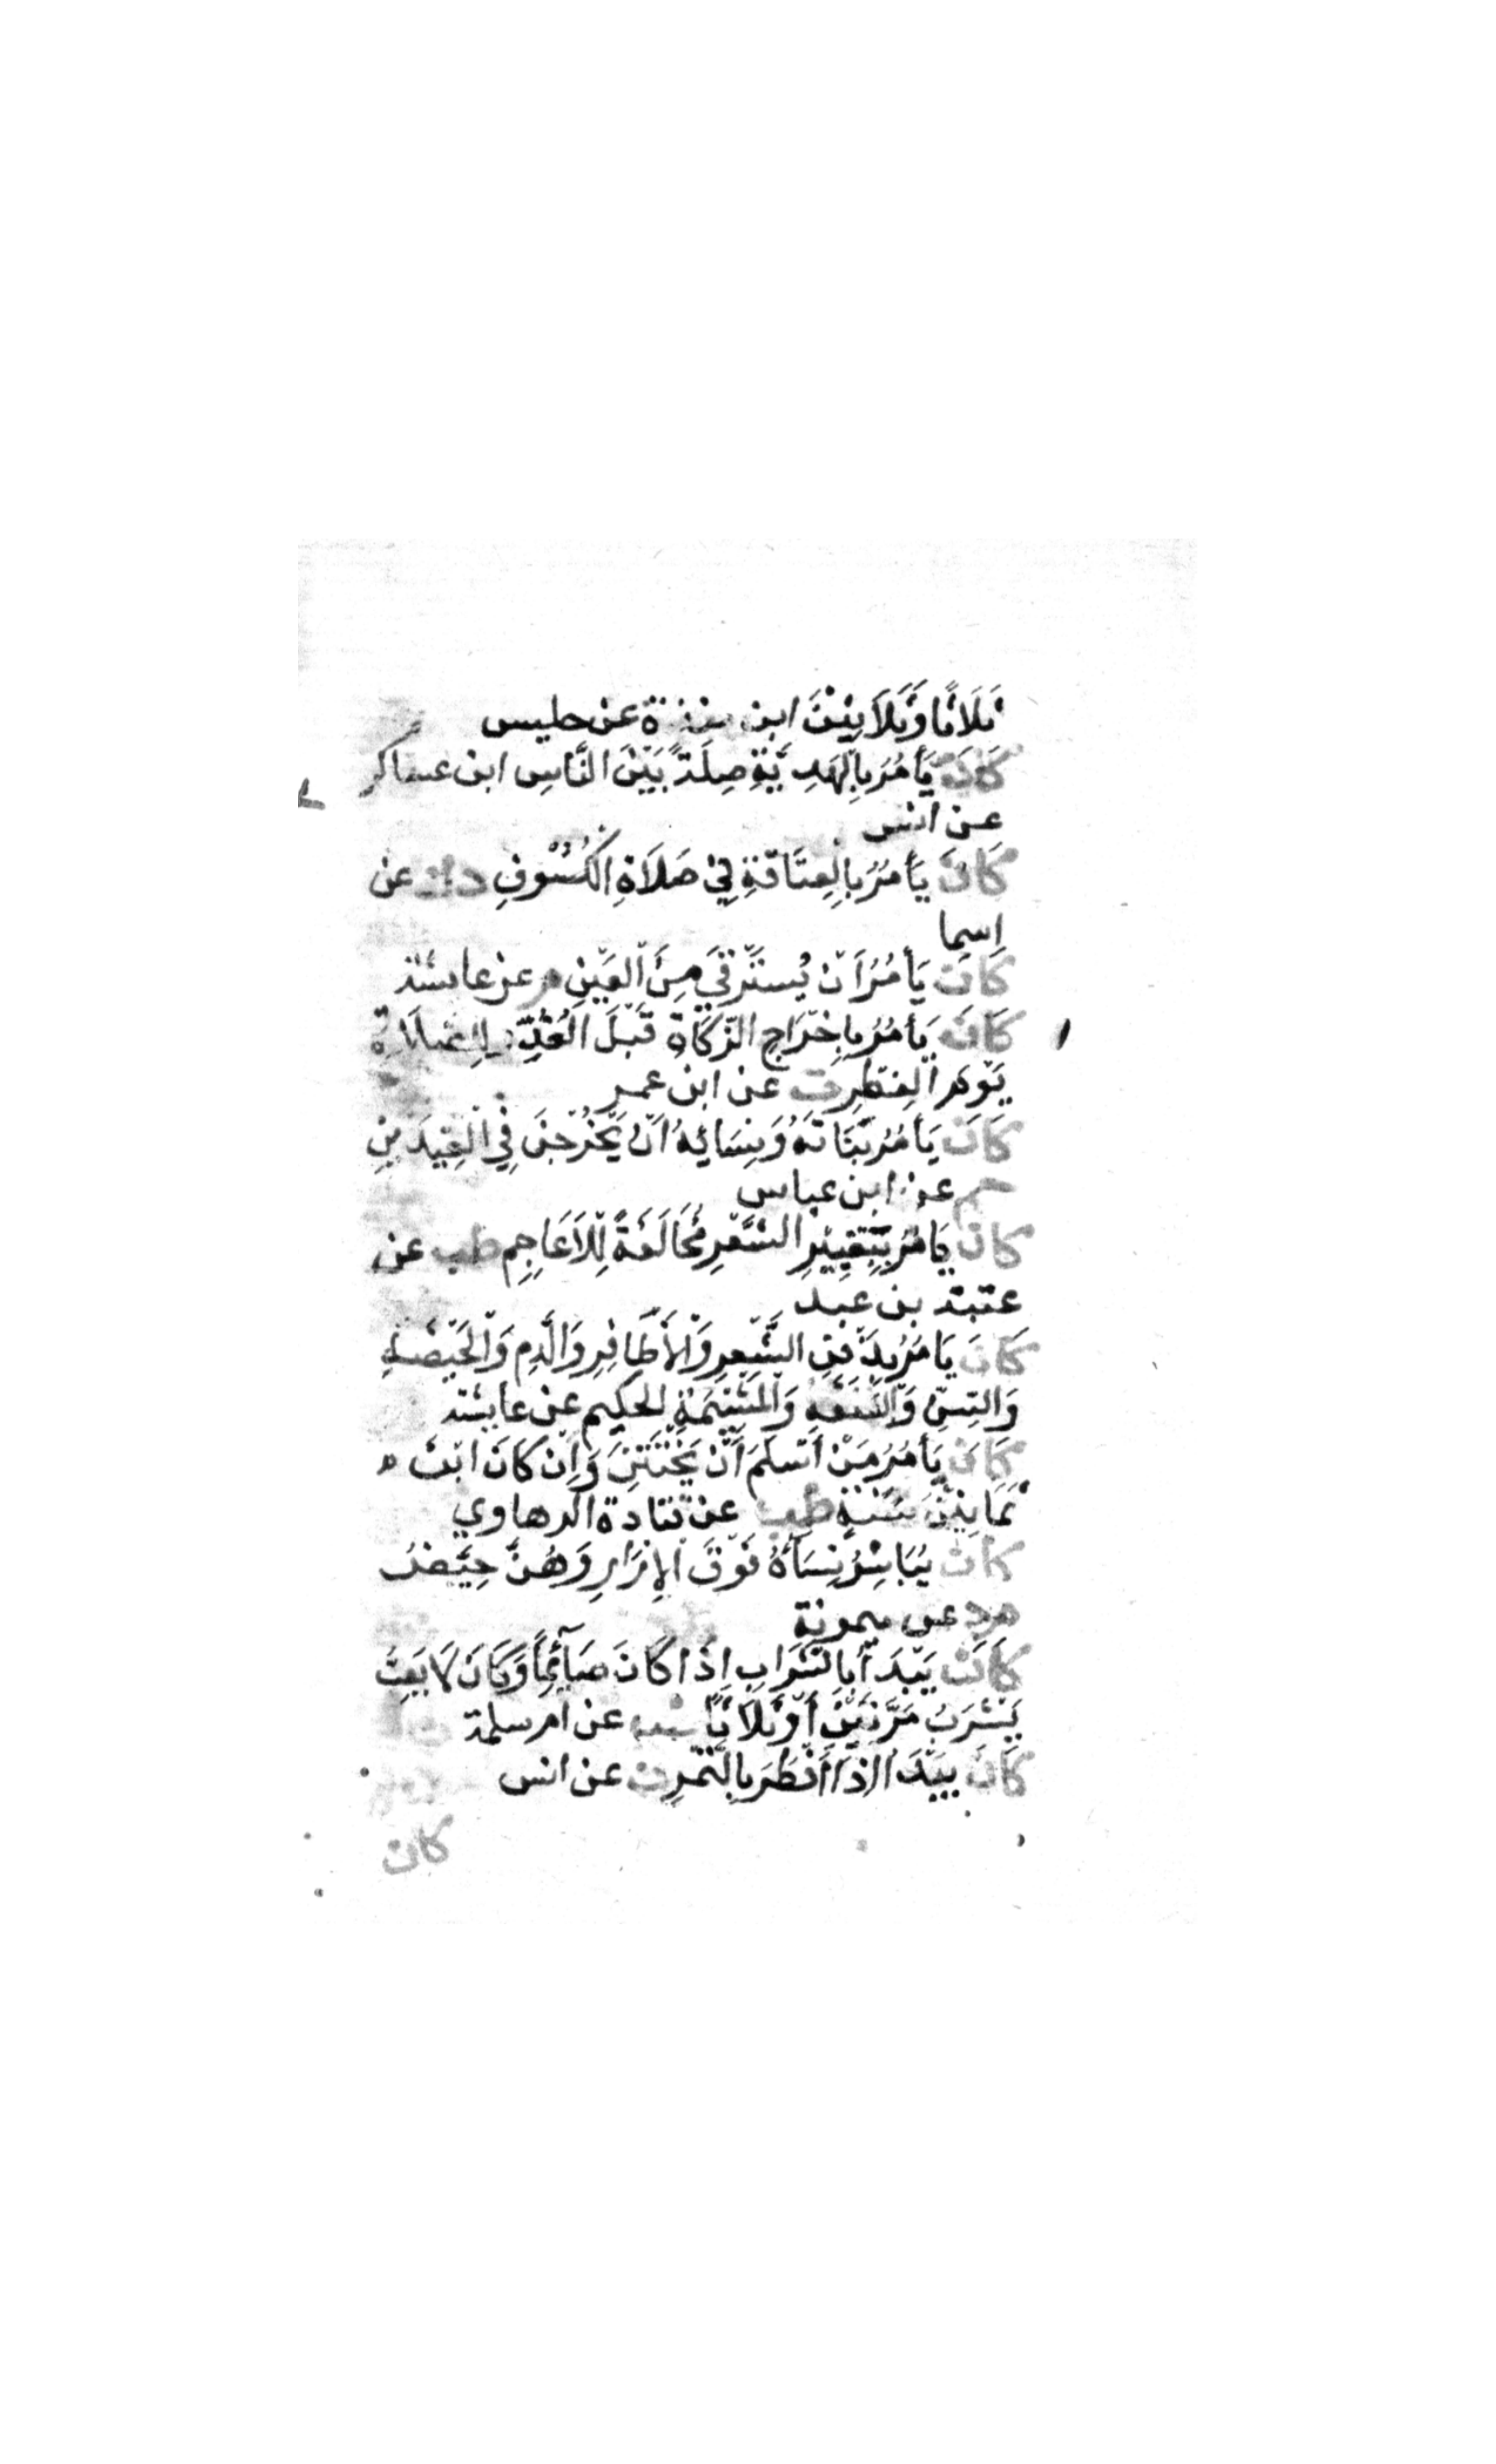 ثَلَاثًا وَثَلَاثِيْنَ ابن منده عن حليس
كَانَ يَأمُرُ بِالْهَدِيَّةِ صِلَةً بَيْنَ النَّاسِ ابن عساكر
عن انس
كَانَ يَأمُرُ بِالْعِتَاقَةِ فِي صَلَاةِ الكُسُوْفِ د ك عن
اسما
كَانَ يَأمُرُ اَنْ يُسْتَرْقَي مِنَ الْعَيْنِ م عن عايشة
كَانَ يَأمُرُ بِاِخْرَاجِ الزَّكَاةِ قَبْلَ الْغُدُوِّ لِلصَّلَاةِ
يَوْمَ الْفِطْرِ ت عن ابن عمر
كَانَ يَأمُرُ بَنَاتَهُ وَنِسَائَهُ اَنْ يَخْرُجْنَ فِي الْعِيدَيْنِ
حم عن ابن عباس
كَانَ يَامُرُ بِتَغْيِيْرِ الشَّعْرِ مُخَالَفَةً لِلْاَعَاجِمِ طب عن
عتبة بن عبد
كَانَ يَامُرُ بِدَفْنِ الشَّعْرِ وَالْاَظَافِرِ وَالدَّمِ وَالْحَيْضَةِ
وَالسِّنِّ وَالْعَلَقَةِ وَالْمَشِيْمَةِ الحكيم عن عايشة
كَانَ يَأمُرُ مَنْ أَسْلَمَ أَنْ يَخْتَتِنَ وَاِنْ كَانَ ابْنَ
ثَمَانِيْنَ سَنَةً طب عن قتادة الرهاوي
كَانَ يُبَاشِرُ نِسَآءَهُ فَوْقَ الاِزَارِ وَهُنَّ حُيَّضُ
م د عن ميمونة
كَانَ يَبْدَأُ بِالشَّرَابِ اِذَا كَانَ صَآئِمًا وَكَانَ لَا يَعِبُّ
يَشْرَبُ مَرَّتَيْنِ أَوْ ثَلَاثًا طب عن ام سلمة
كَانَ يَبْدَاُ اِذَا اَفْطَرَ بِالتَّمْرِ ن عن انس
كان